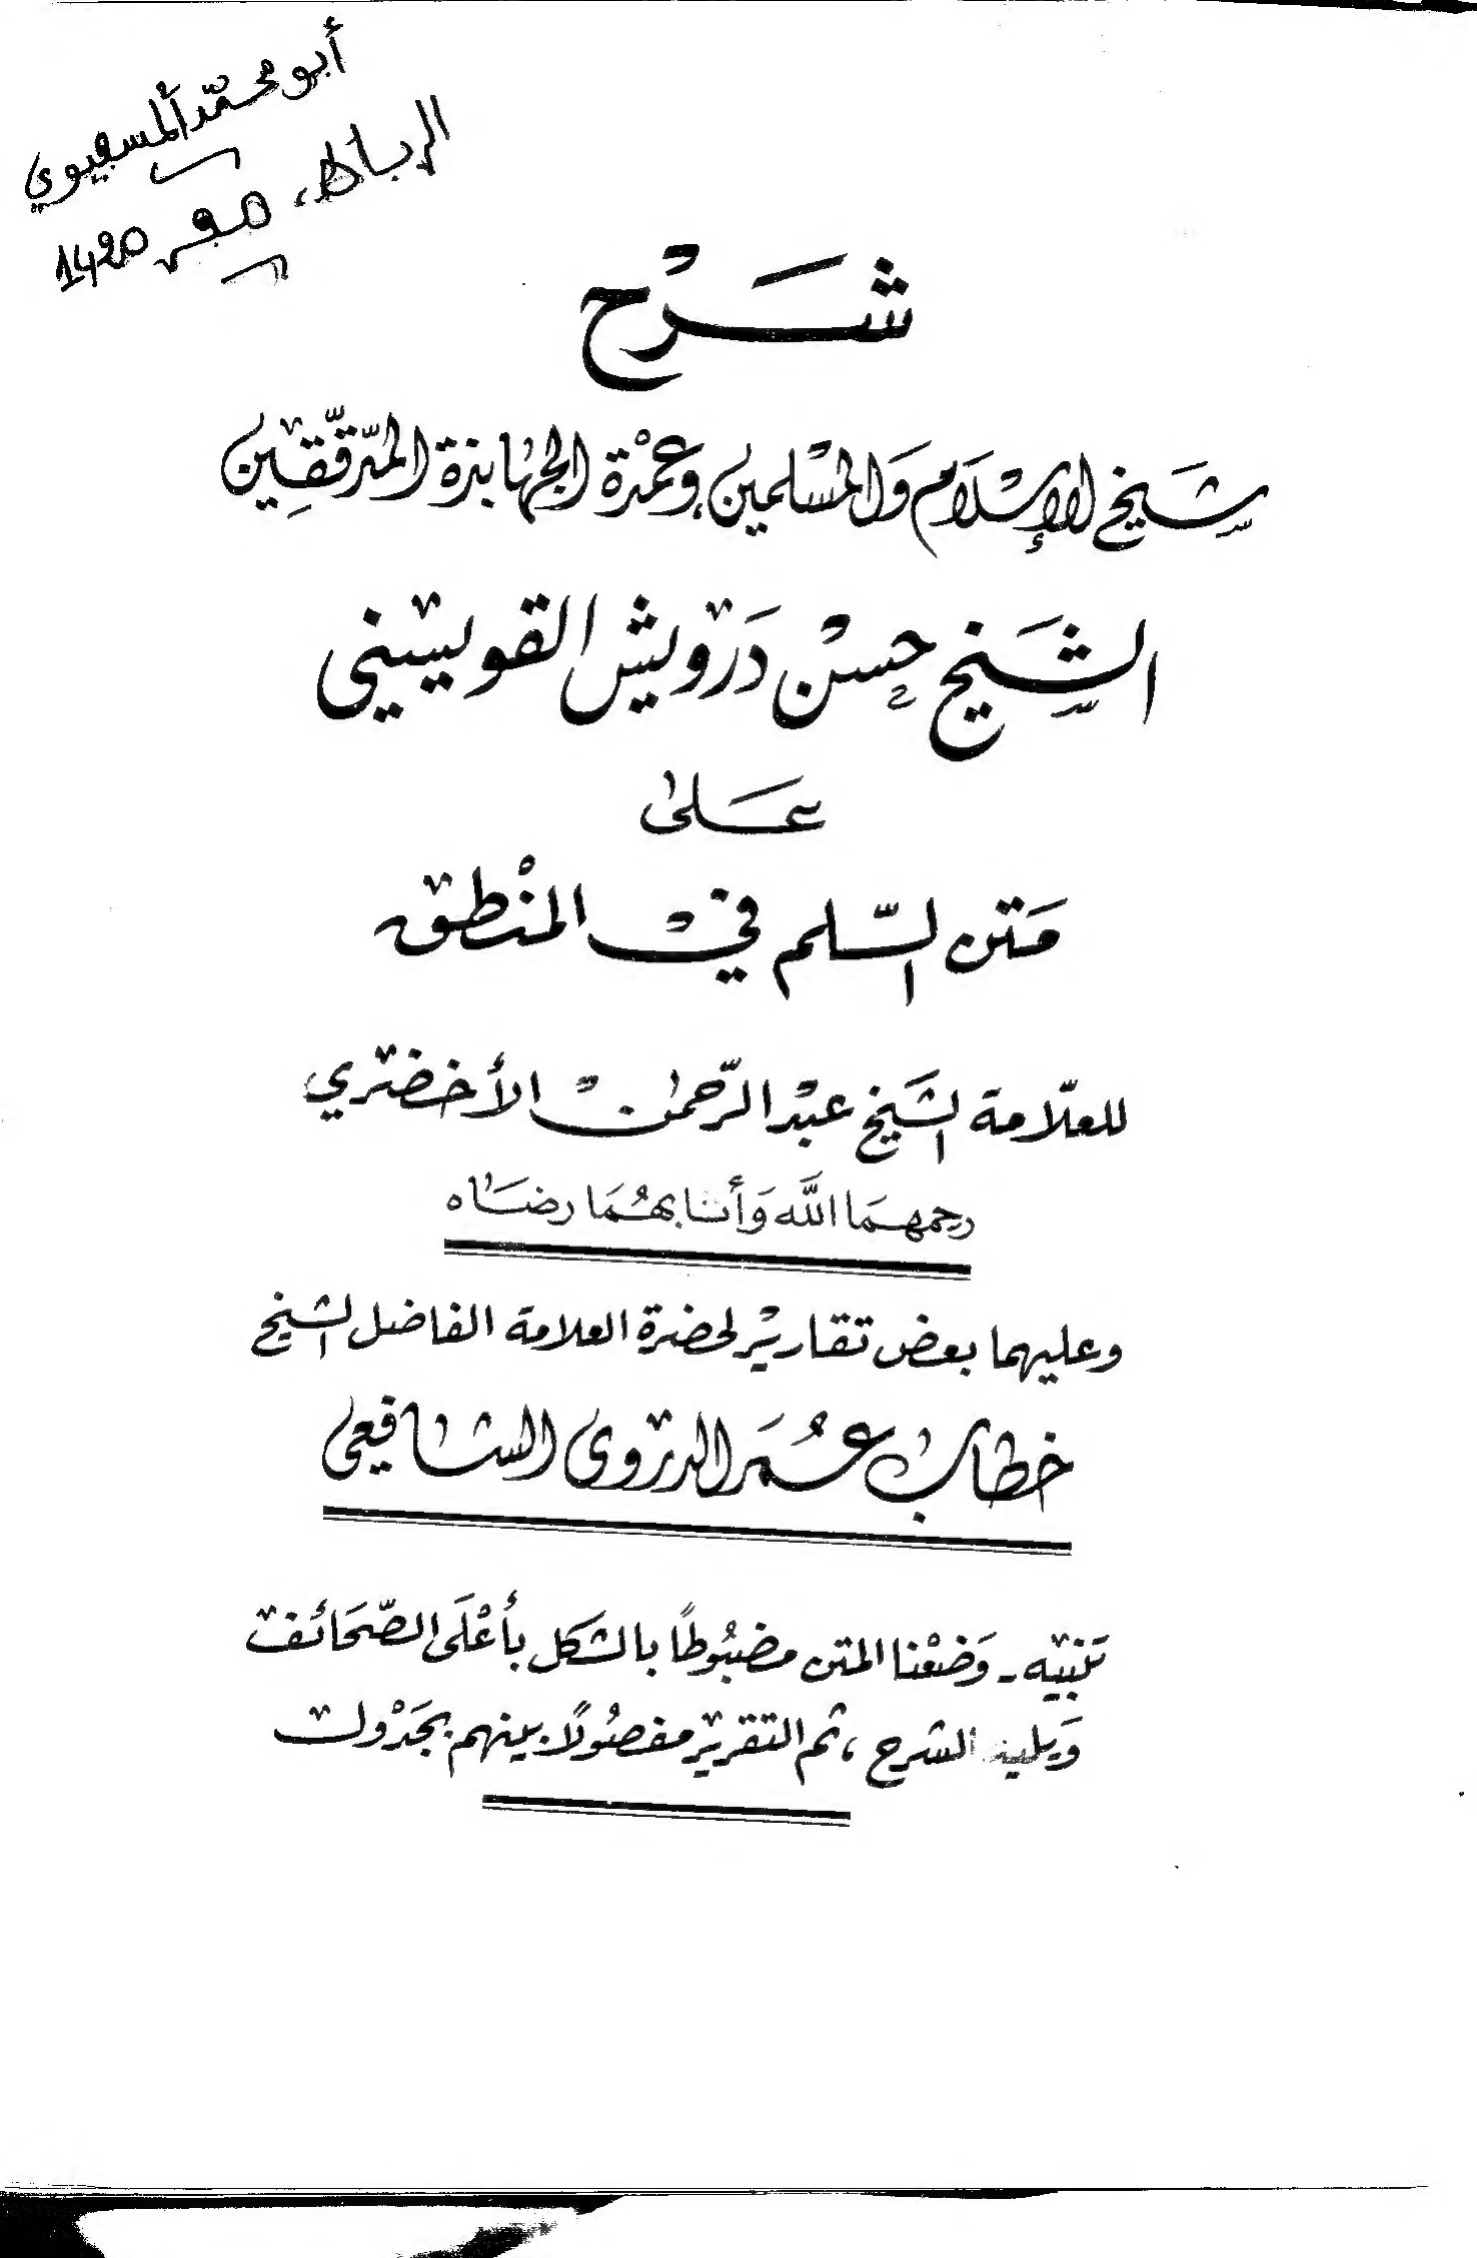 أبو محمّد المسفيوي
الرباط، صفر 1420
شَرْح
شَيخ الإسْلَام وَالمسْلمين وعمْدة الجهابذة المدّققِين
الشَيخ حسنْ دَرويش القويسني
عَلى
مَتن السّلم فيْ المنْطق
للعلّامة الشَيخ عبْد الرّحمٰنْ الأخضري
رحمهمَا اللَّه وَأثابهُمَا رضَاه
وعليهما بعض تقاريْر لحضرة العلامة الفاضل الشيخ
خطاب عُمَر الدروى الشافعى
تنبيه ـ وَضعْنا المتن مضبُوطاً بالشكل بأعْلَى الصّحَائف
وَيليه الشرح ، ثم التقرير مفصُولًا بينهم بجَدْول